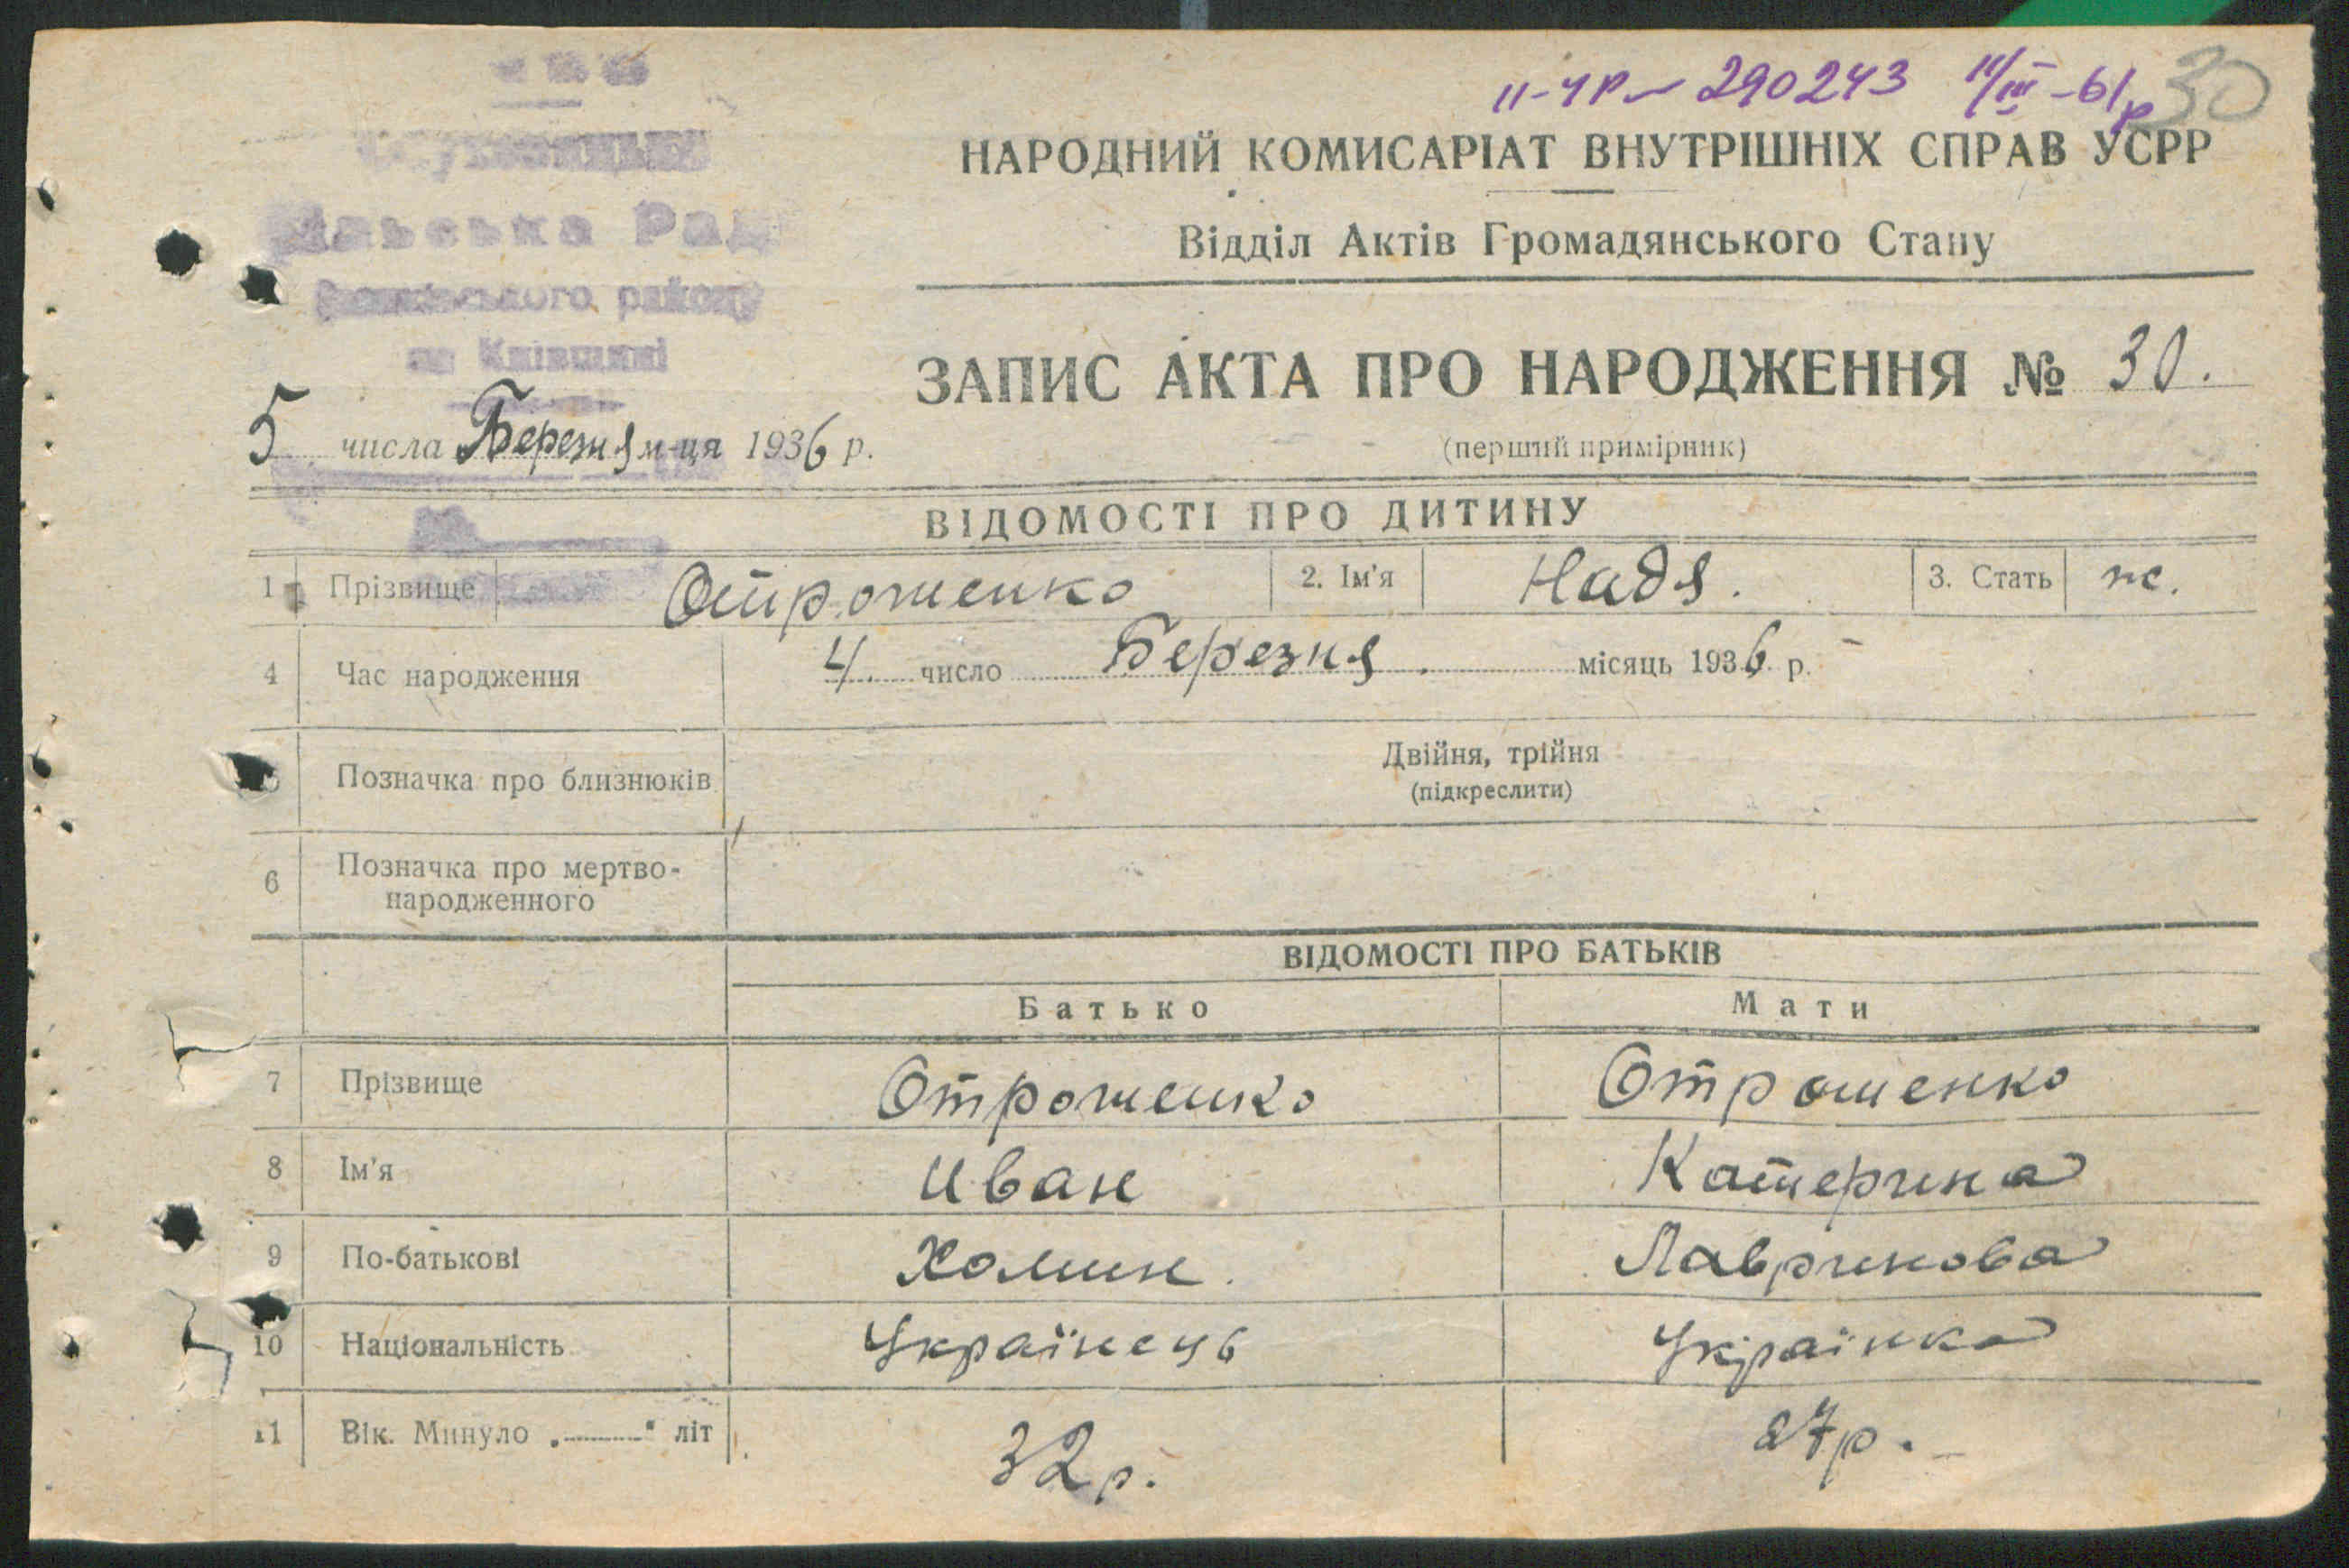 II-ЧР 290243 11/III-61р 30
НАРОДНИЙ КОМИСАРІАТ ВНУТРІШНІХ СПРАВ УСРР
Рад
Відділ Актів Громадянського Стану
району
на Київщині
ЗАПИС АКТА ПРО НАРОДЖЕННЯ № 30.
5 числа Березня м-ця 1936 р.
(перший примірник)
ВІДОМОСТІ ПРО ДИТИНУ
1 Прізвище Отрошенко 2. Ім'я Надя. 3. Стать ж.
4 Час народження 4 число Березня місяць 1936 р.
Позначка про близнюків Двійня, трійня
(підкреслити)
6 Позначка про мертво-
народженного
ВІДОМОСТІ ПРО БАТЬКІВ
Батько Мати
7 Прізвище Отрошенко Отрошенко
8 Ім'я Иван Катерина
9 По-батькові Хомин. Лавринова
10 Національність Українець Українка
11 Вік. Минуло „ “ літ 32р. 27р.